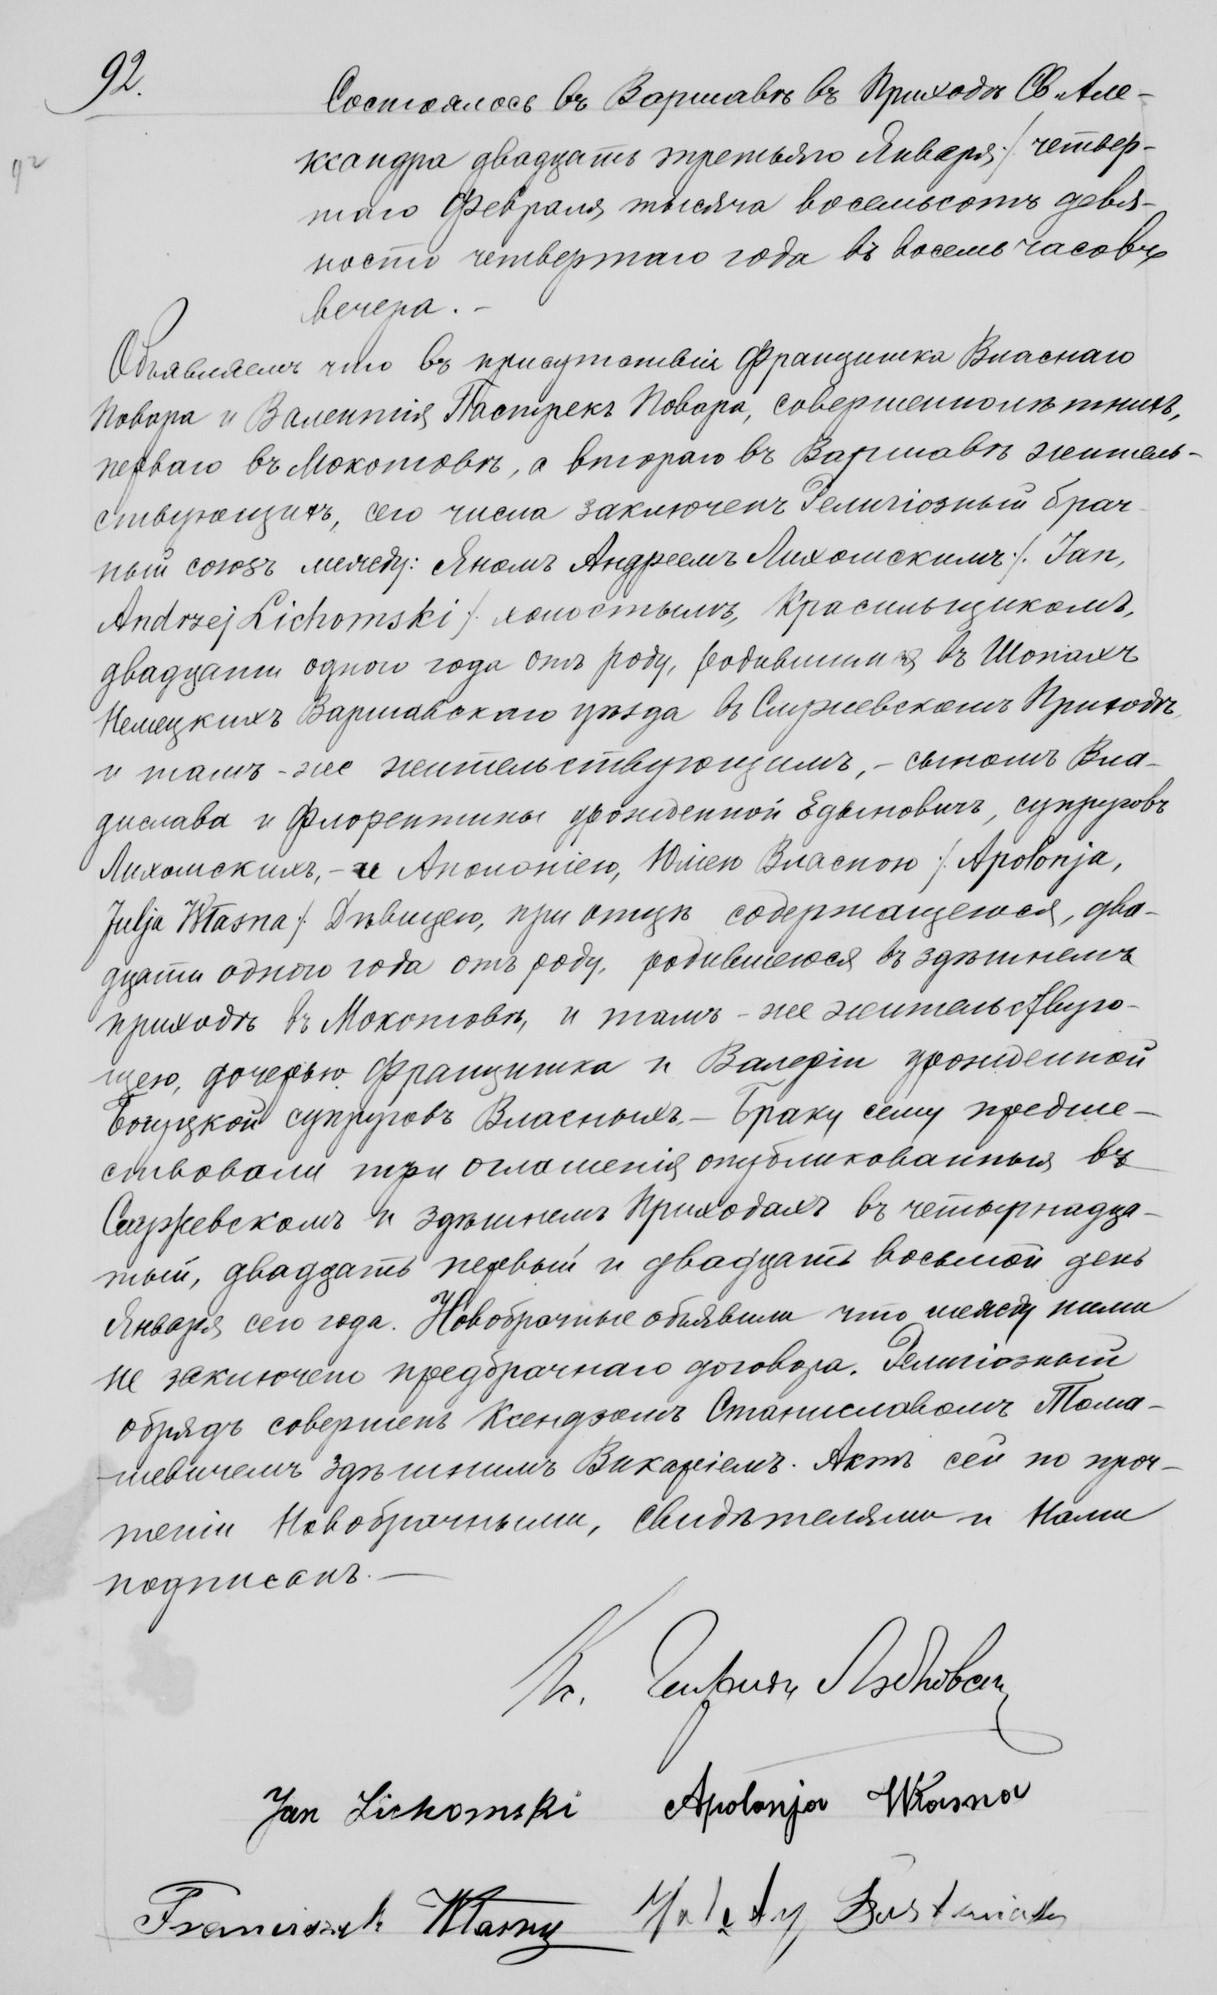 92.
92
Состоялось въ Варшавѣ въ Приходѣ Св. Але-
ксандра двадцать третьяго Января /: четвер-
таго Февраля тысяча восемьсотъ девя-
носто четвертаго года въ восемь часовъ
вечера. -
Объявляемъ что въ присутствіи Францишка Власнаго
Повара и Валентія Повара, совершеннолѣтнихъ,
перваго въ Мокотовѣ, а втораго въ Варшавѣ житель-
ствующихъ, сего числа заключенъ Религіозный брач-
ный союзъ между: Яномъ Андреемъ Лихомскимъ /: Jan,
Andrzej Lichomski /: холостымъ, Красильщикомъ,
двадцати одного года отъ роду, родившимся въ Шопахъ
Немецкихъ Варшавскаго уѣзда въ Служевскомъ Приходѣ,
и тамъ-же жительствующимъ, - сыномъ Вла-
дислава и Флорентины урожденной супруговъ
Лихомскихъ, - и Аполоніею, Юліею Власною /: Apolonja,
Julja Własna /: Дѣвицею, при отцѣ содержащеюся, два-
дцати одного года отъ роду, родившеюся въ здѣшнемъ
приходѣ въ Мокотовѣ, и тамъ-же жительствую-
щею, дочерью Францишка и Валеріи урожденной
супруговъ Власныхъ. - Браку сему предше-
ствовали три оглашенія опубликованныя въ
Служевскомъ и здѣшнемъ Приходахъ въ четырнадца-
тый, двадцать первый и двадцать восьмой день
Января сего года. Новобрачные объявили что между ними
не заключено предбрачнаго договора. Религіозный
обрядъ совершенъ Ксендзомъ Станиславомъ Тома-
шевичемъ здѣшнимъ Викаріемъ. Актъ сей по проч-
теніи Новобрачными, свидѣтелями и Нами
подписанъ. -
К.
Jan Lichomski Apolonja Własna
Franciszek Własny